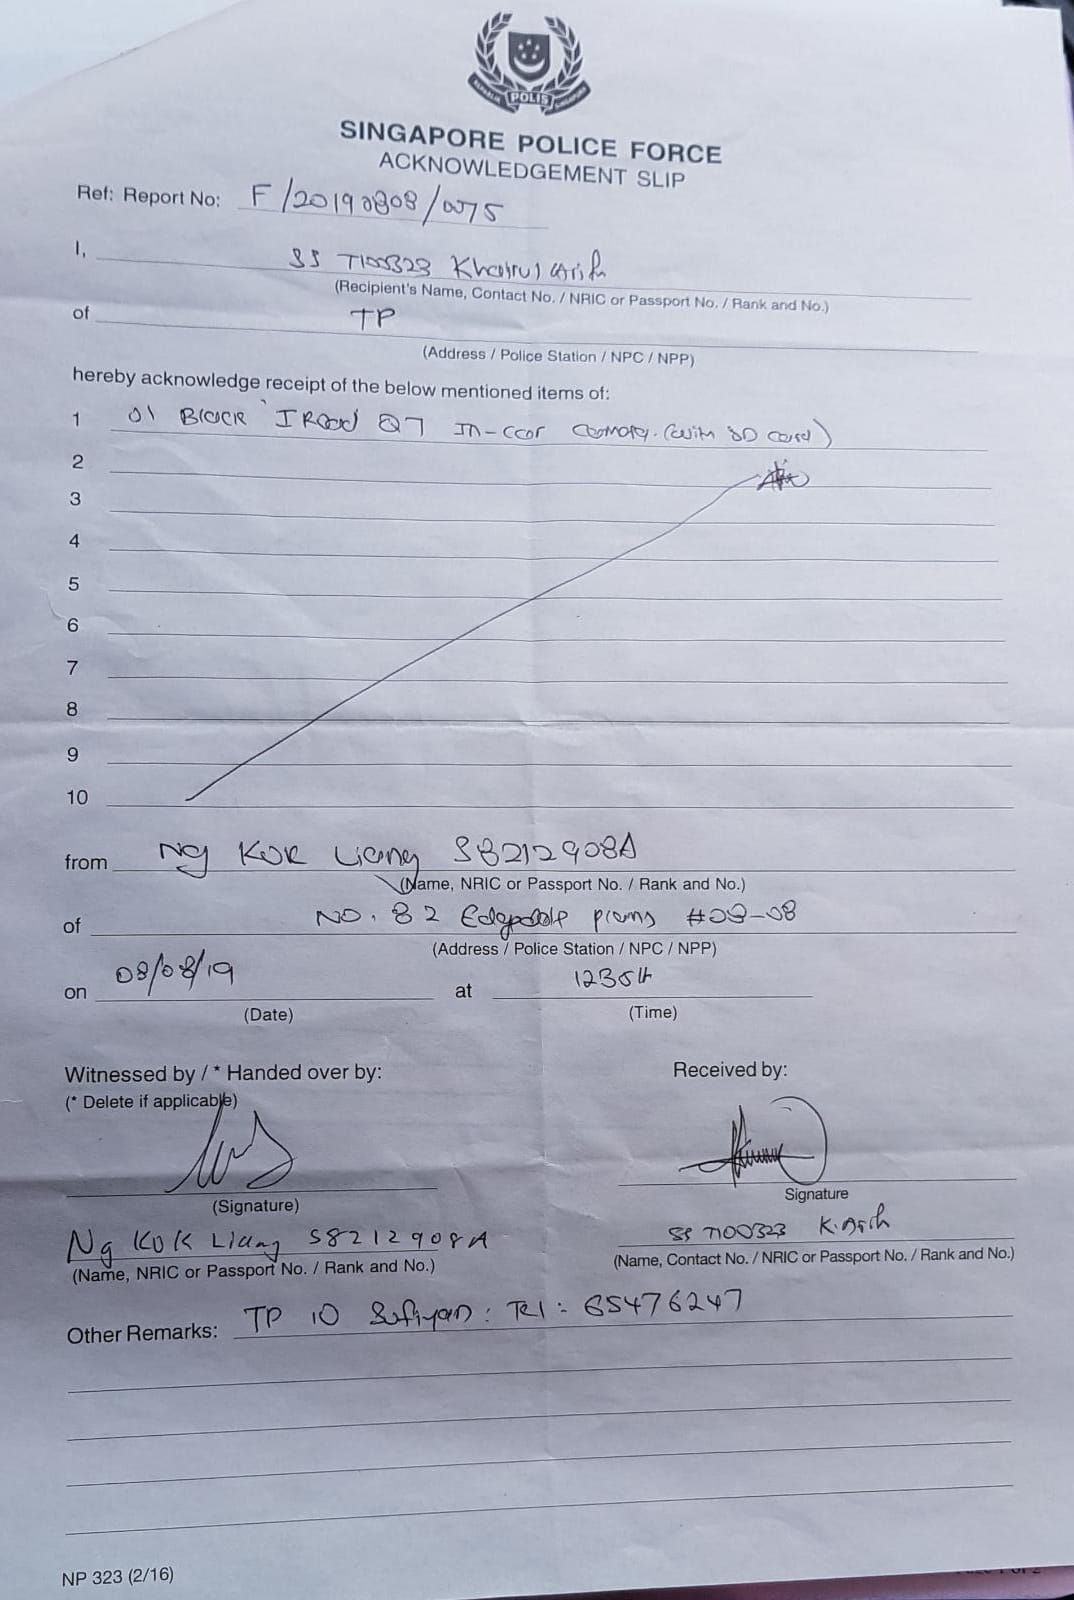 REPUBLIC POLIS SINGAPORE
SINGAPORE POLICE FORCE
ACKNOWLEDGEMENT SLIP
Ref: Report No: F/20190808/0075
I, SS T100323 Khairul Arifin
(Recipient's Name, Contact No. / NRIC or Passport No. / Rank and No.)
of TP
(Address / Police Station / NPC / NPP)
hereby acknowledge receipt of the below mentioned items of:
1 01 Black 'IRoad' Q7 In-car camera. (with SD card)
2
3
4
5
6
7
8
9
10
from Ng Kok Liang S8212908A
(Name, NRIC or Passport No. / Rank and No.)
of NO. 82 Edgedale plains #03-08
(Address / Police Station / NPC / NPP)
on 08/08/19 at 1235H
(Date) (Time)
Witnessed by / * Handed over by: Received by:
(* Delete if applicable)
(Signature) Signature
Ng Kok Liang S8212908A SS T100323 K. Arifin
(Name, NRIC or Passport No. / Rank and No.) (Name, Contact No. / NRIC or Passport No. / Rank and No.)
Other Remarks: TP IO Sufiyan: Tel: 65476247
NP 323 (2/16)